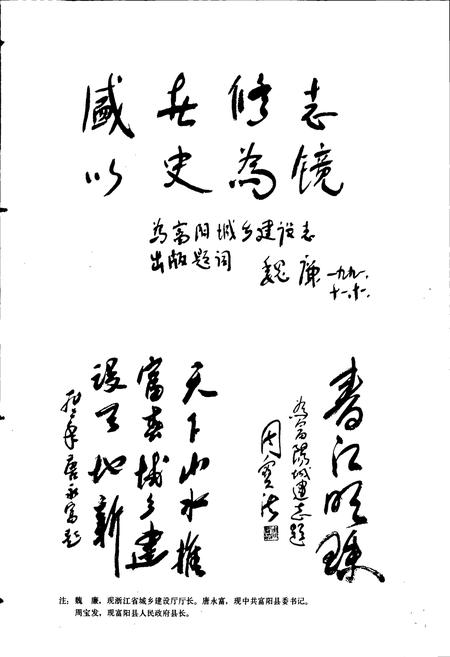 盛世修志
以史為镜
为富阳城乡建设志
出版题词
魏廉 一九九一、
十一、十一、
春江明珠
为富阳城建志题
周宝法
天下山水推
富春城乡建
设天地新
唐永富题
注：魏　廉，现浙江省城乡建设厅厅长。唐永富，现中共富阳县委书记。
周宝发，现富阳县人民政府县长。